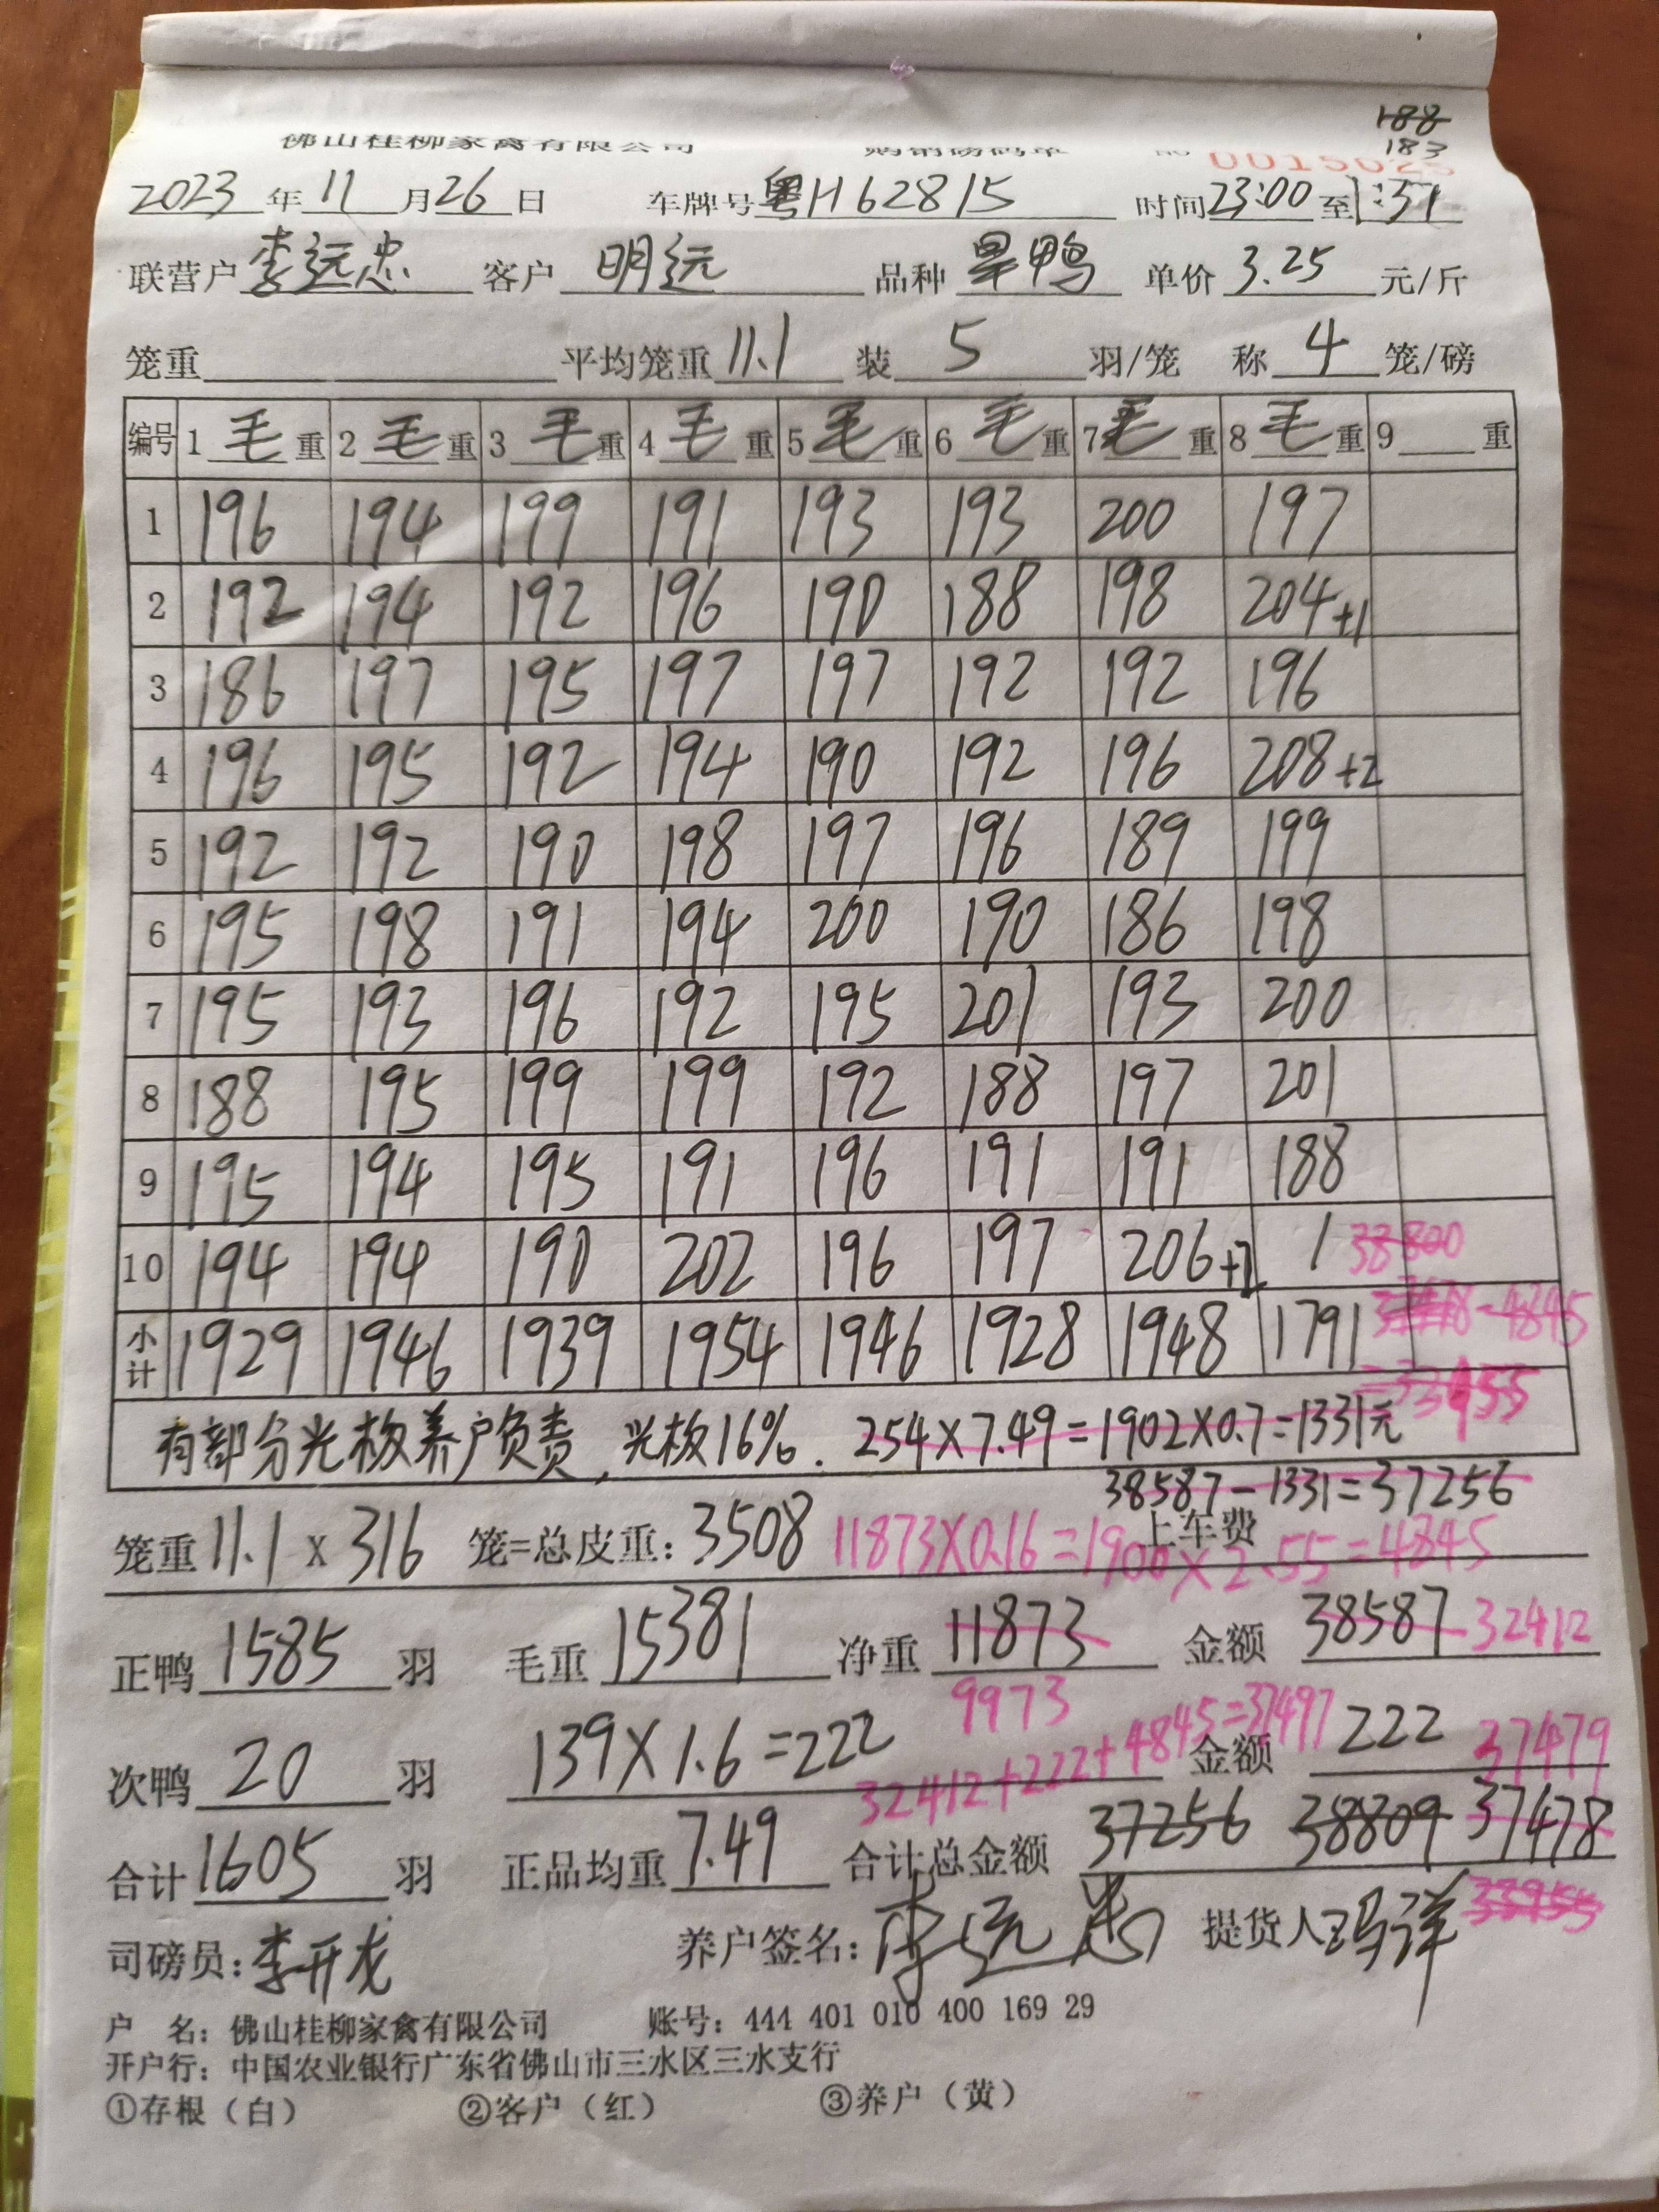 188
183
佛山桂柳家禽有限公司 购销磅码单 № 0015025
2023年11月26日 车牌号粤H62815 时间23:00至1:31
联营户李远忠 客户 明远 品种 旱鸭 单价 3.25 元/斤
笼重 平均笼重11.1 装 5 羽/笼 称 4 笼/磅
编号 1毛重 2毛重 3毛重 4毛重 5毛重 6毛重 7毛重 8毛重 9 重
1 196 194 199 191 193 193 200 197
2 192 194 192 196 190 188 198 204+1
3 186 197 195 197 197 192 192 196
4 196 195 192 194 190 192 196 208+2
5 192 192 190 198 197 196 189 199
6 195 198 191 194 200 190 186 198
7 195 193 196 192 195 201 193 200
8 188 195 199 199 192 188 197 201
9 195 194 195 191 196 191 191 188
10 194 194 190 202 196 197 206+2 1 38800
小计 1929 1946 1939 1954 1946 1928 1948 1791 -4845
=33955
有部分光板养户负责,光板16%. 254×7.49=1902×0.7=1331元
38587-1331=37256
笼重11.1×316 笼=总皮重:3508 上车费
11873×0.16=1900×2.55=4845
正鸭1585羽 毛重15381 净重11873 金额38587 32412
9973
次鸭20羽 139×1.6=222 金额222 37479
32412+222+4845=37497
合计1605羽 正品均重7.49 合计总金额 37256 38809 37478
33955
司磅员:李开龙 养户签名:李远忠 提货人:冯洋
户 名:佛山桂柳家禽有限公司 账号:444 401 010 400 169 29
开户行:中国农业银行广东省佛山市三水区三水支行
①存根(白) ②客户(红) ③养户(黄)